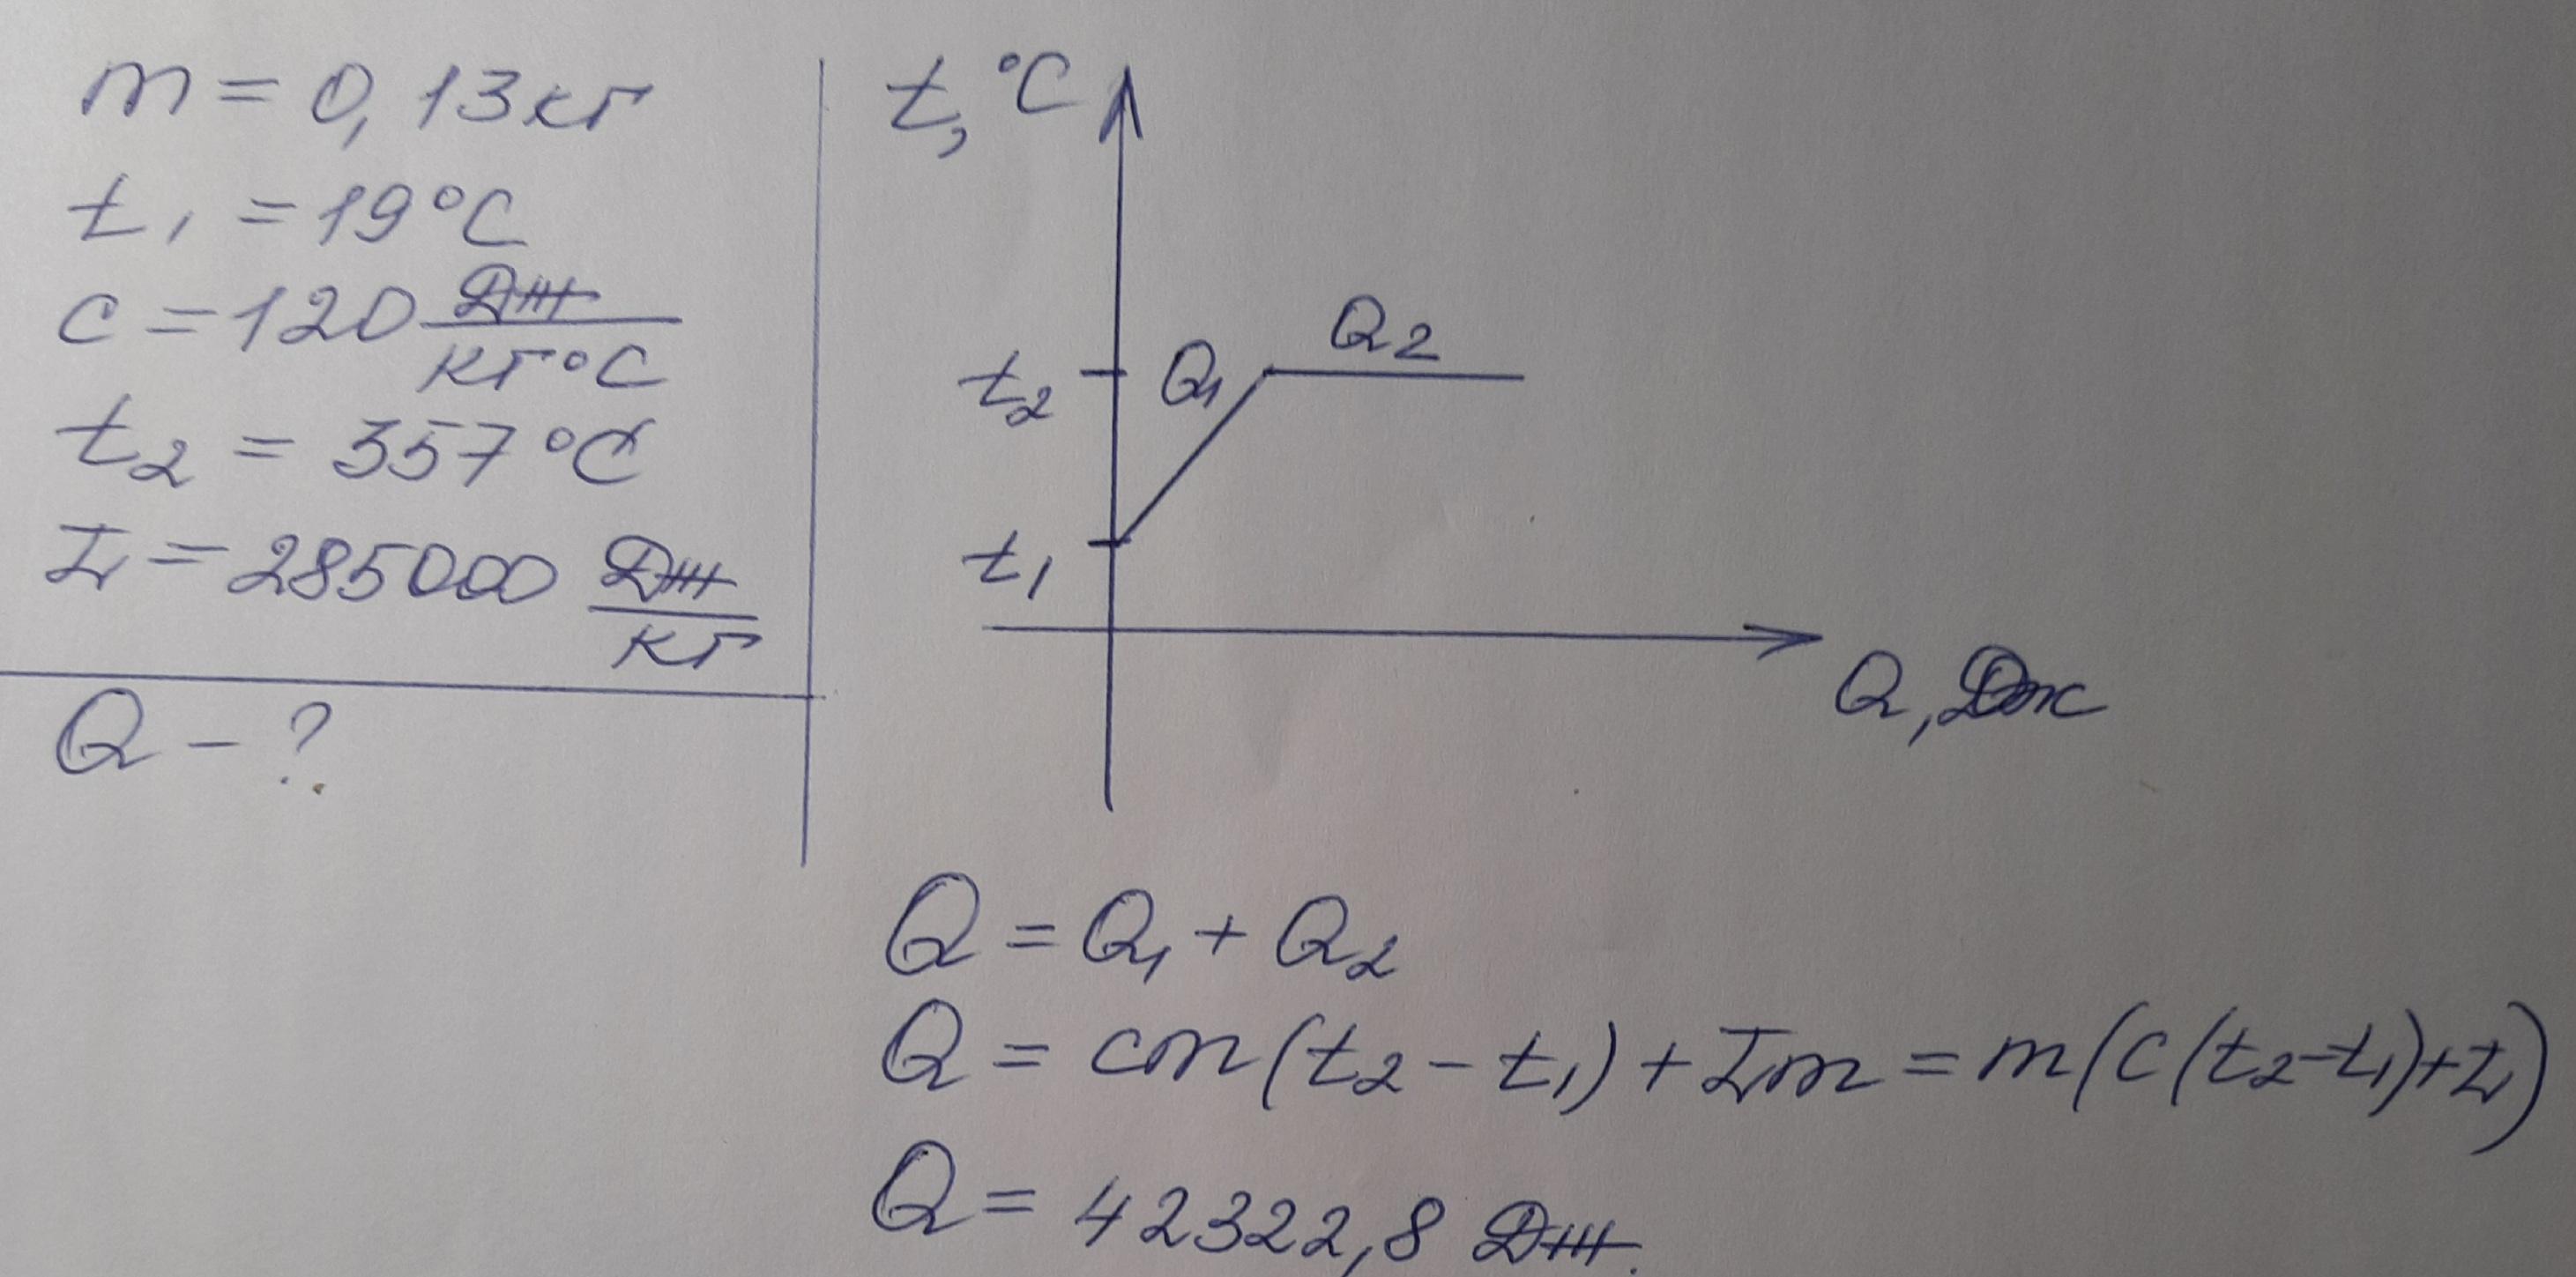 m = 0,13 кг
t₁ = 19 °C
c = 120 Дж/кг°C
t₂ = 357 °C
L = 285000 Дж/кг
Q - ?
t, °C
t₂
Q₁
Q₂
t₁
Q, Дж
Q = Q₁ + Q₂
Q = cm(t₂ - t₁) + Lm = m(c(t₂-t₁)+L)
Q = 42322,8 Дж.